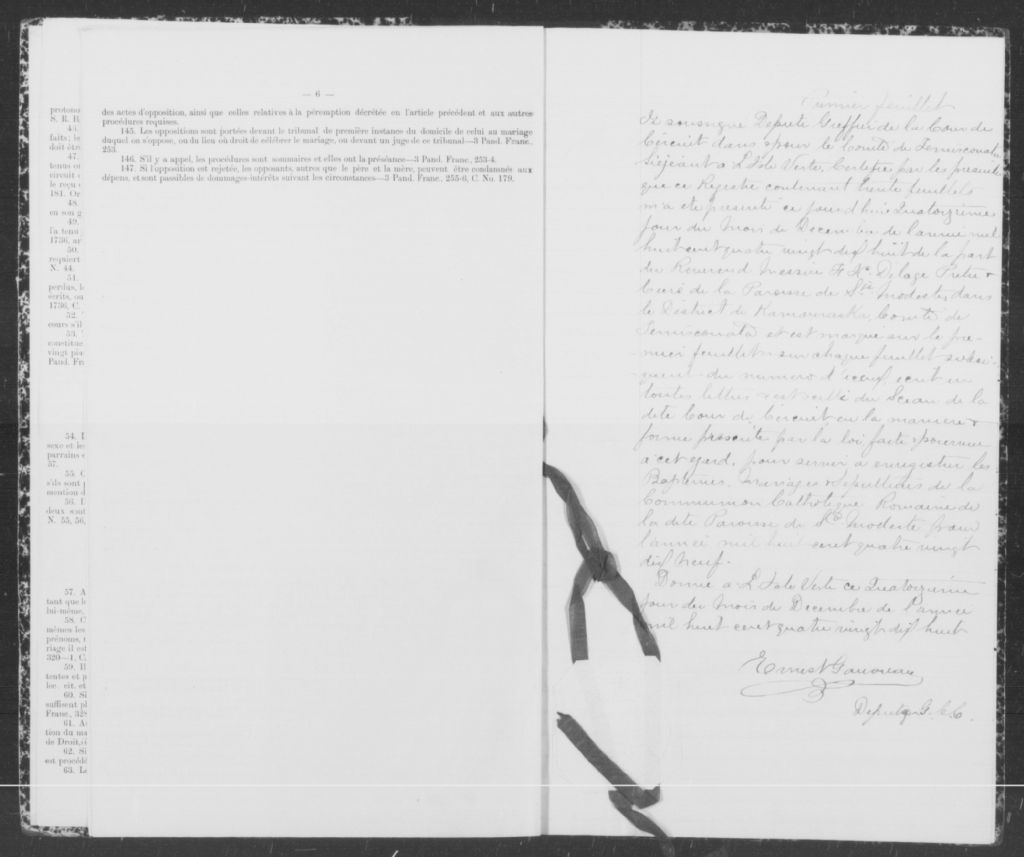 protono
S. R. B.
faits; le
doit être
47.
tenus o
circuit
le reçu
184. Or
48.
en son g
49.
l'a tenu
1736, ar
50.
requiert
N. 44.
51.
perdus, l
écrits, ou
1736, C.
52.
cours s'il
53.
constitue
vingt pia
Pand. Fr
54. I
sexe et le
parrains e
57.
55. C
s'ils sont
mention d
56. I
deux sont
N. 55, 56,
57. A
tant que l
lui-même,
58. C
mêmes les
prénoms,
riage il est
320—1. C.
59. Il
tentes et p
loc. cit. et
60. Si
suffisent pl
Franc., 328
61. A
tion du ma
de Droit,
62. Si
est procédé
63. Le
— 6 —
des actes d'opposition, ainsi que celles relatives à la péremption décrétée en l'article précédent et aux autres
procédures requises.
145. Les oppositions sont portées devant le tribunal de première instance du domicile de celui au mariage
duquel on s'oppose, ou du lieu où droit de célébrer le mariage, ou devant un juge de ce tribunal—3 Pand. Franc.,
253.
146. S'il y a appel, les procédures sont sommaires et elles ont la préséance—3 Pand. Franc., 253-4.
147. Si l'opposition est rejetée, les opposants, autres que le père et la mère, peuvent être condamnés aux
dépens, et sont passibles de dommages-intérêts suivant les circonstances—3 Pand. Franc., 255-6, C. No. 179.
Premier feuillet
Je sousigné Député Greffier de la Cour de
Circuit dans & pour le Comté de Temiscouata
Siégeant a L'Isle Verte, Certifie par les presente
que ce Registre contenant trente feuillets
m'a été presenté ce jourd'hui Quatorzième
jour du Mois de Decembre de l'année mil
huit cent quatre vingt dix huit de la part
du Reverend Messire F. X. Delage Prêtre &
Curé de la Paroisse de Ste Modeste, dans
le District de Kamouraska, Comté de
Temiscouata et est marqué sur le pre-
mier feuillet & sur chaque feuillet subse-
quent du numero d'iceux, écrit en
toutes lettres & est scellé du Sceau de la
dite Cour de Circuit en la manière &
forme prescrite par la loi faite & pourvue
à cet egard, pour servir a enregistrer les
Baptemes, Mariages & Sepultures de la
Communion Catholique Romaine de
la dite Paroisse de Ste Modeste pour
l'année mil huit cent quatre vingt
dix Neuf.
Donné a L'Isle Verte ce Quatorzième
jour du Mois de Decembre de l'année
mil huit cent quatre vingt dix huit
Ernest Gauvreau
Deputé G. C. C.